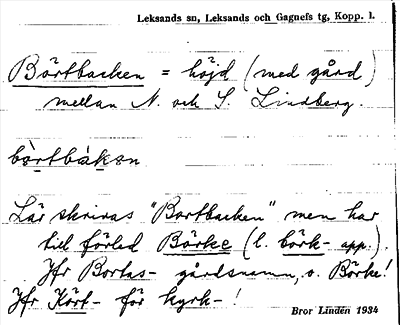 Leksands sn, Leksands och Gagnefs tg, Kopp. l.
Börtbacken = höjd (med gård)
mellan N. och S. Lindberg.
bòrtbákən
Lär skrivas "Bortbacken" men har
till förled Börke (l. börk- app.).
Jfr Bortas- gårdsnamn, o. Börke!
Jfr Kört- för kyrk-!
Bror Lindén 1934